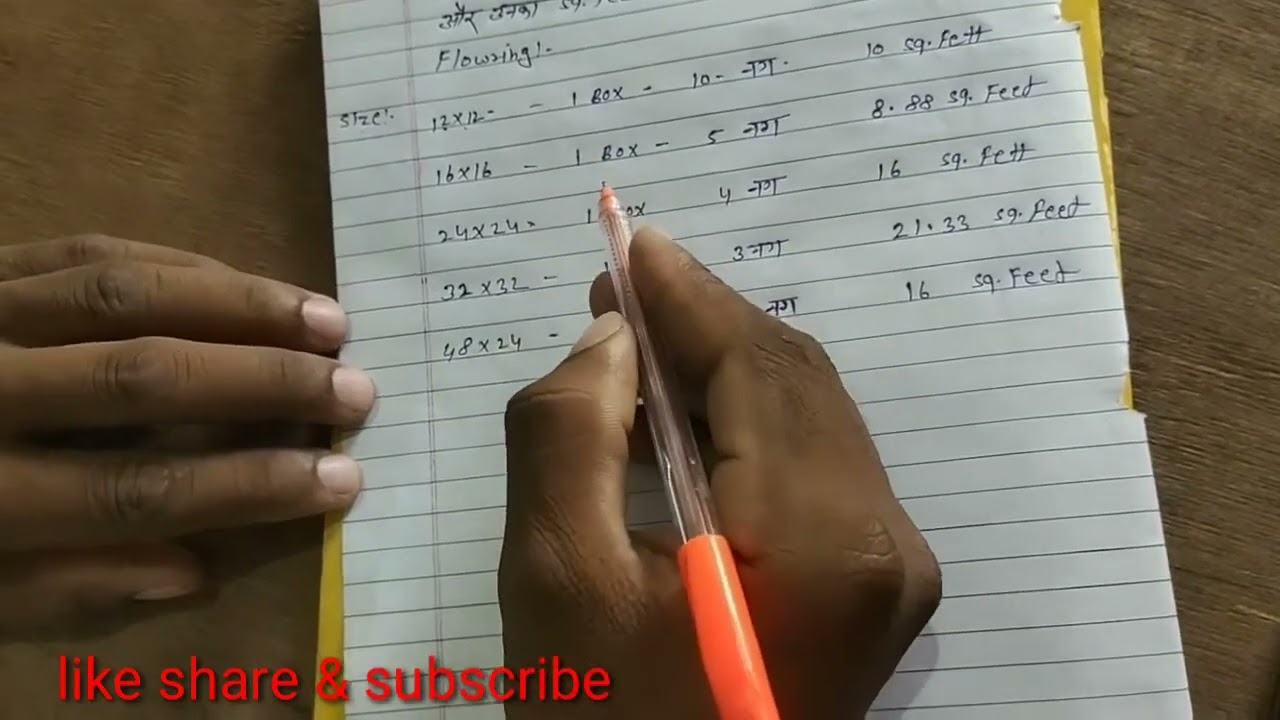 और उनका sq.
Flowring!-
Size!- 12×12- - 1 BOX - 10- नग. 10 sq. Fett
16×16 - 1 BOX - 5 नग 8.88 sq. Feet
24×24- 1 4 नग 16 sq. Fett
32×32 - 3 नग 21.33 sq. Feet
48×24 - नग 16 sq. Feet
like share & subscribe